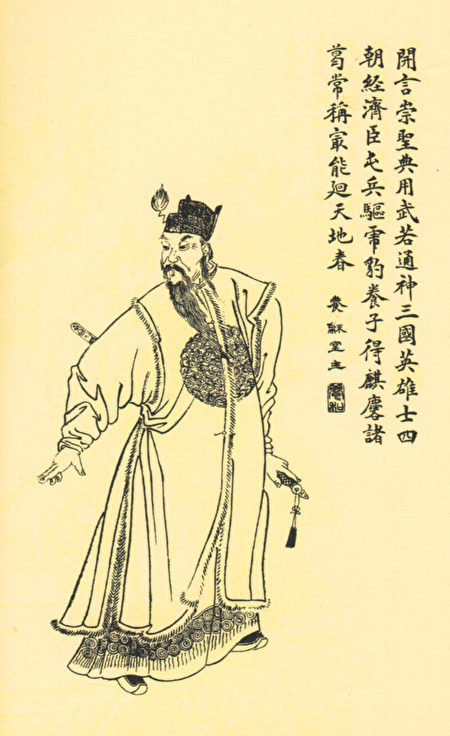 開言崇聖典用武若通神三國英雄士四
朝經濟臣屯兵驅乕豹養子得麒麐諸
葛常稱冣能廻天地春
龢室主